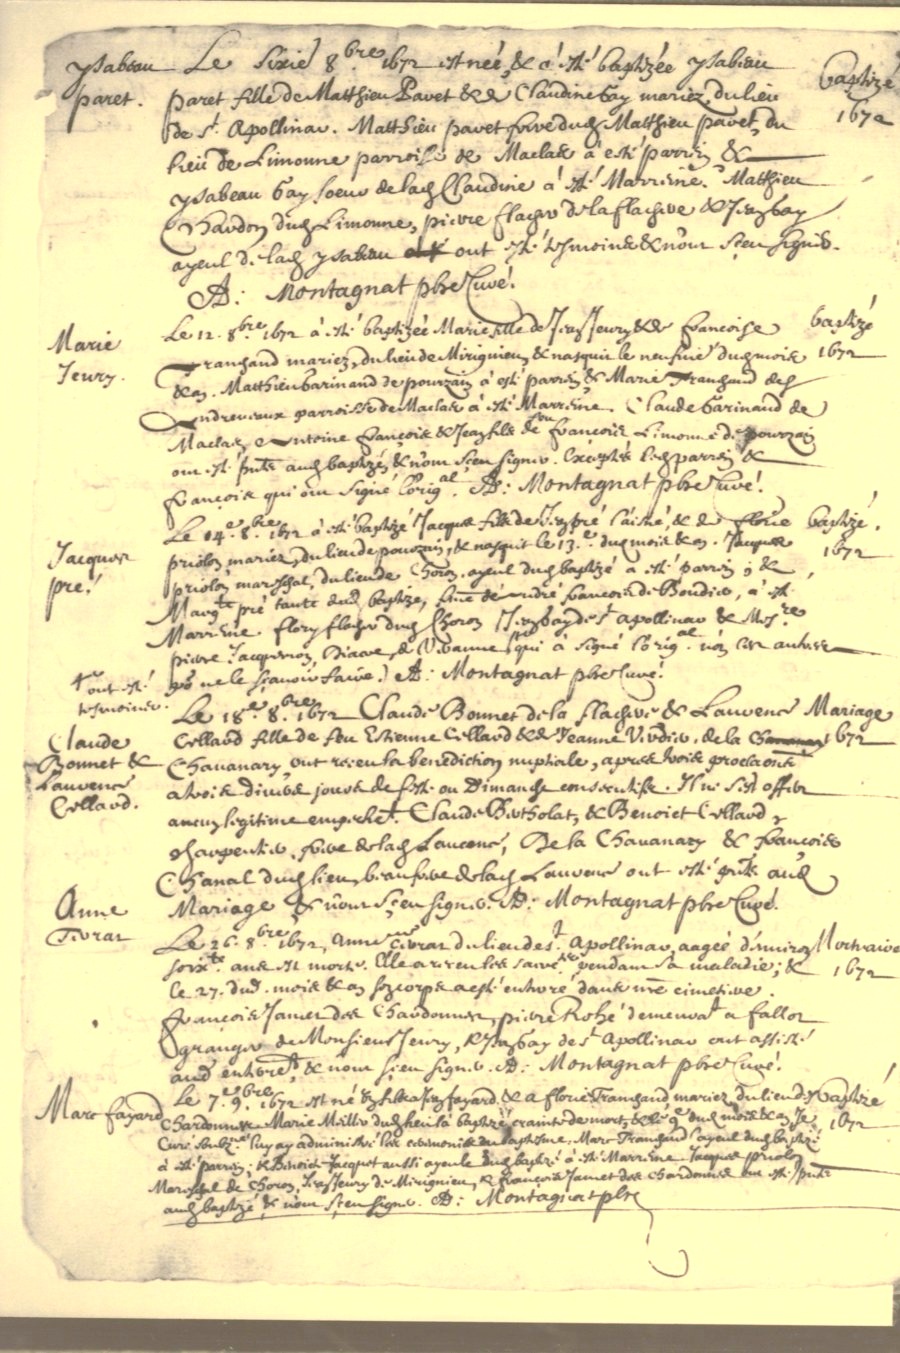 ysabeau paret.
Baptizé 1672
Le sixie 8bre 1672 est née, & a esté baptizée ysabeau
paret fille de Matthieu Paret & de Claudine Gay mariez, du lieu
de st. Apollinar. Matthieu paret frere dud Matthieu paret, du
lieu de Limonne parroisse de Maclas a esté parrein &
ysabeau Gay soeur de lad Claudine a esté Marreine. Matthieu
Chardon dud Limonne, pierre flacher de la flachere & Jean Gay
ayeul de lad ysabeau ont esté tesmoins & n'ont sceu signer.
A: Montagnat pbre Curé.
Marie Jeury.
baptizé 1672
Le 12. 8bre 1672 a esté baptizée Marie fille de Jean Jeury & de francoise
Tranchand mariez, du lieu de Mirignieu, & nasquit le neufuie dud mois
& an. Matthieu Garinand de pourzain a esté parrein & Marie Tranchand des
Andrevaux parroisse de Maclas a esté Marreine. Claude Garinand de
Maclas, Antoine françois & Jean fils de feu francois Limonne de pourzain
ont esté pnts aud baptize, & n'ont sceu signer. Exceptés led parrein &
françois qui ont signé l'origal. A: Montagnat pbre Curé.
Jacques pré.
baptizé. 1672
Le 14e. 8bre 1672 a esté baptizé Jacques fils de Jean pré l'aisné, & de florie
priolon mariez, du lieu de pourzain, & nasquit le 13.e dud mois & an. Jacques
priolon mareschal, du lieu de Choron, ayeul dud baptizé a esté parrein; &
Margte pré tante dud baptize, André francois de Boudin, a esté
Marreine flory flacher dud Choron Jean Gay de st Apollinar & Mesre
pierre Jacqueron, Diacre, de Vivanne qui a signé l'origal. non les autres
po ne le sçavoir faire.) A: Montagnat pbre Curé.
+ ont esté tesmoins.
Claude Bonnet & Laurence Cellard.
Mariage 1672
Le 18e. 8bre 1672 Claude Bonnet de la flachere & Laurence
Cellard fille de feu Estienne Cellard & de Jeanne Virdier, de la
Chavanary, ont receu la benediction nuptiale, apres trois proclaons
a trois divers jours de feste ou Dimanche consecutifs. Il ne s'est offert
aucun legitime empechet. Claude Bertholat, & Benoict Cellard
charpentier, frere de lad Laurence, De la Chavanary & francois
Chanal dud lieu, beaufrere de lad Laurence ont esté pnts aud
Mariage & n'ont sceu signer. A: Montagnat pbre Curé.
Anne Civrat
Mortuaire 1672
Le 26. 8bre 1672, Anne Civrat du lieu de st Apollinar, aagée d'environ
soixte ans est morte. Elle a receu les sacrets pendant sa maladie; &
le 27. dud. mois & an son corps a esté enterré dans nre cimetiere.
françois Jamet des Chardonnes, pierre Rohé demeurat a fallot
granger de Monsieur Jeury, & Jean Gay de st Apollinar ont assisté
aud enterret, & n'ont sceu signer. A: Montagnat pbre Curé.
Marc fayard
Baptizé 1672
Le 7e. 9bre 1672 est né fils a Jean fayard & a florie Tranchand mariez, du lieu des
Chardonnes. Marie Millier dud lieu l'a baptizé crainte de mort, & le 9e dud mois & an, Je
Curé soubzné luy ay administré les ceremonies du baptesme. Marc Tranchand l'ayeul dud baptizé
a esté parrein, & Benoicte Jacquet aussi ayeule dud baptizé a esté Marreine Jacques priolon
Mareschal de Choron, Jean Jeury de Mirignieu, & françois Jamet des Chardonnes ont esté pnts
aud baptizé & n'ont sceu signer. A: Montagnat pbre